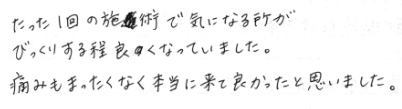 たった1回の施術で気になる所が
びっくりする程良くなっていました。
痛みもまったくなく本当に来て良かったと思いました。